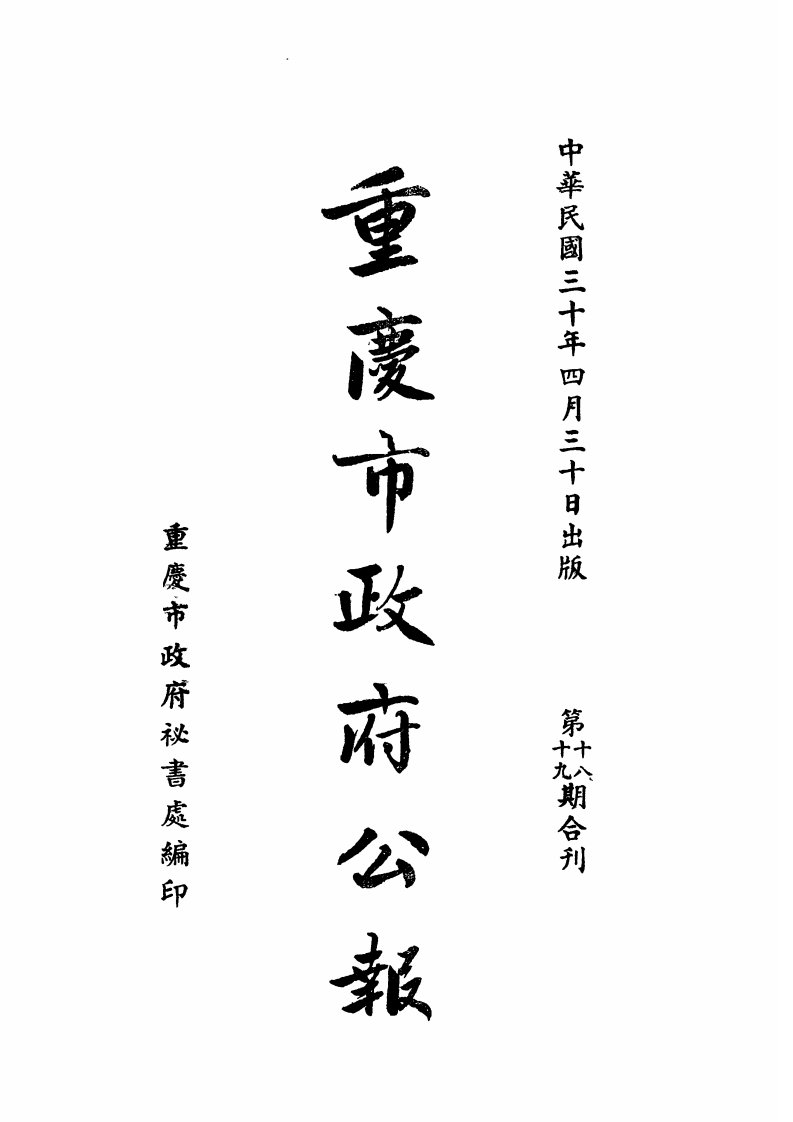 中華民國三十年四月三十日出版
第十八、十九期合刊
重慶市政府公報
重慶市政府祕書處編印